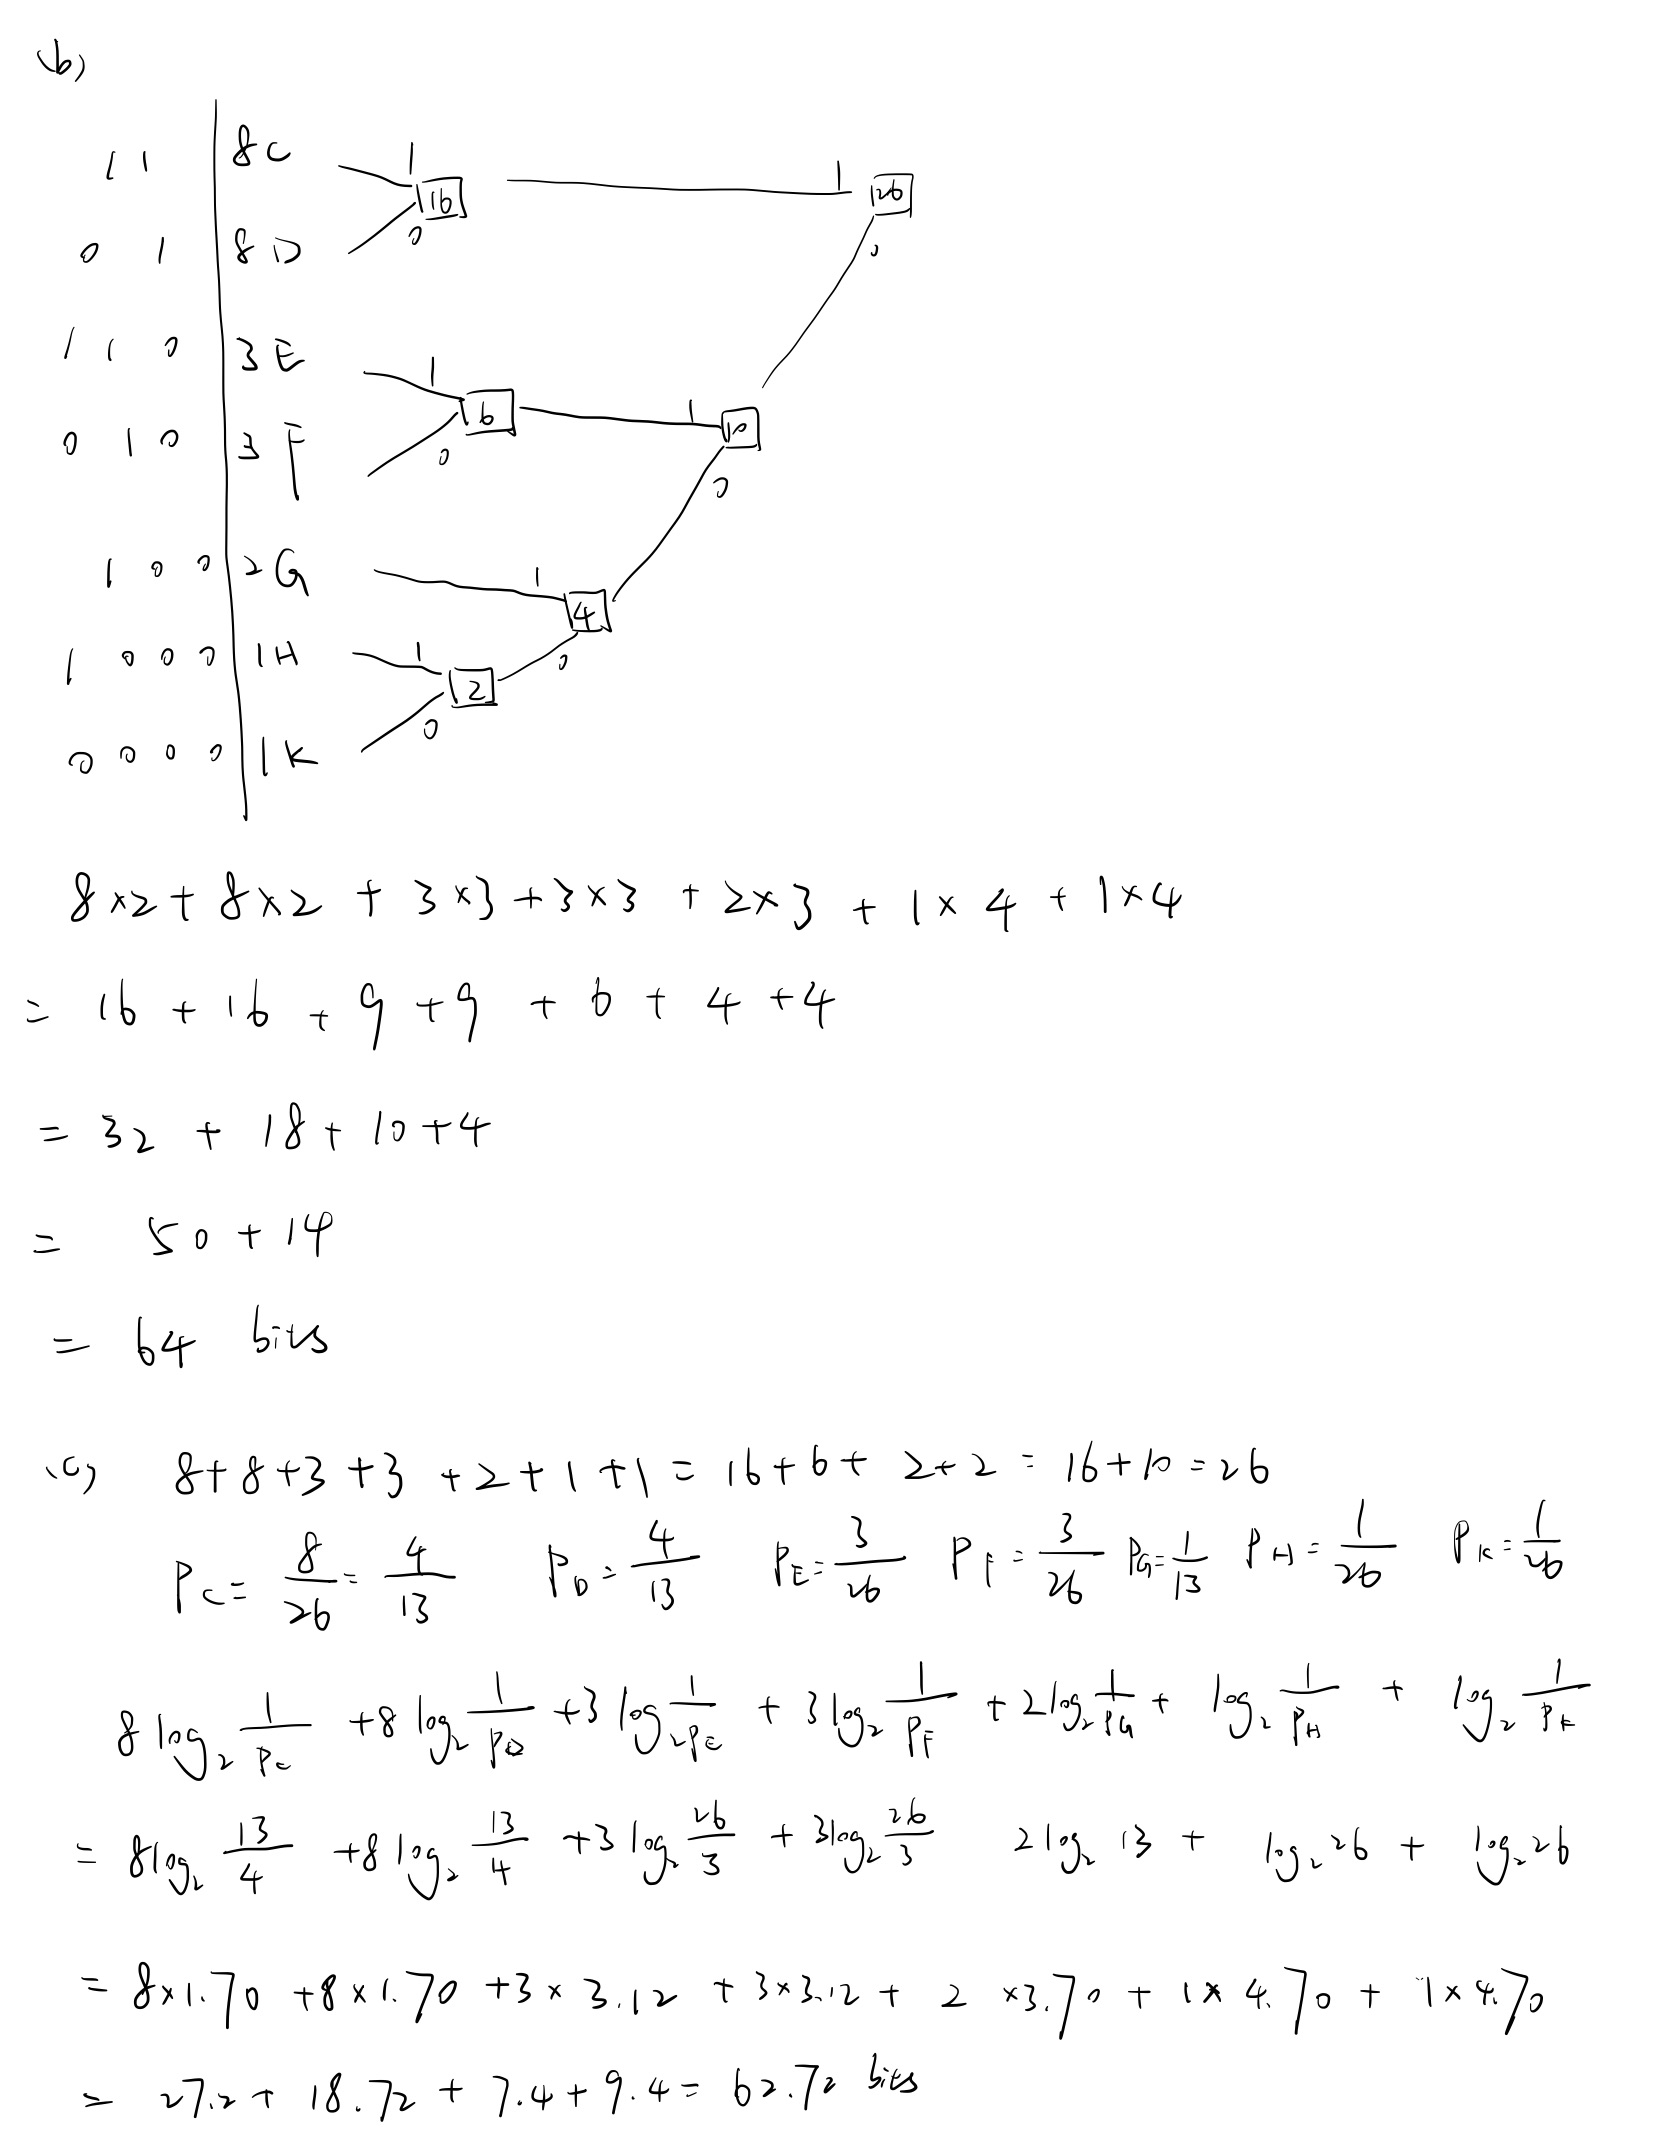 (b)
1 1 | 8 C 1 16 1 26
0 1 | 8 D 0 0
1 1 0 | 3 E 1 6 1 10
0 1 0 | 3 F 0 0
1 0 0 | 2 G 1 4
1 0 0 0 | 1 H 1 2 0
0 0 0 0 | 1 K 0
8×2 + 8×2 + 3×3 + 3×3 + 2×3 + 1×4 + 1×4
= 16 + 16 + 9 + 9 + 6 + 4 + 4
= 32 + 18 + 10 + 4
= 50 + 14
= 64 bits
(c) 8+8+3+3+2+1+1 = 16+6+2+2 = 16+10 = 26
P_C = 8/26 = 4/13 P_D = 4/13 P_E = 3/26 P_F = 3/26 P_G = 1/13 P_H = 1/26 P_K = 1/26
8 log₂ 1/P_C + 8 log₂ 1/P_D + 3 log₂ 1/P_E + 3 log₂ 1/P_F + 2 log₂ 1/P_G + log₂ 1/P_H + log₂ 1/P_K
= 8 log₂ 13/4 + 8 log₂ 13/4 + 3 log₂ 26/3 + 3 log₂ 26/3 2 log₂ 13 + log₂ 26 + log₂ 26
= 8×1.70 + 8×1.70 + 3×3.12 + 3×3.12 + 2×3.70 + 1×4.70 + 1×4.70
= 27.2 + 18.72 + 7.4 + 9.4 = 62.72 bits